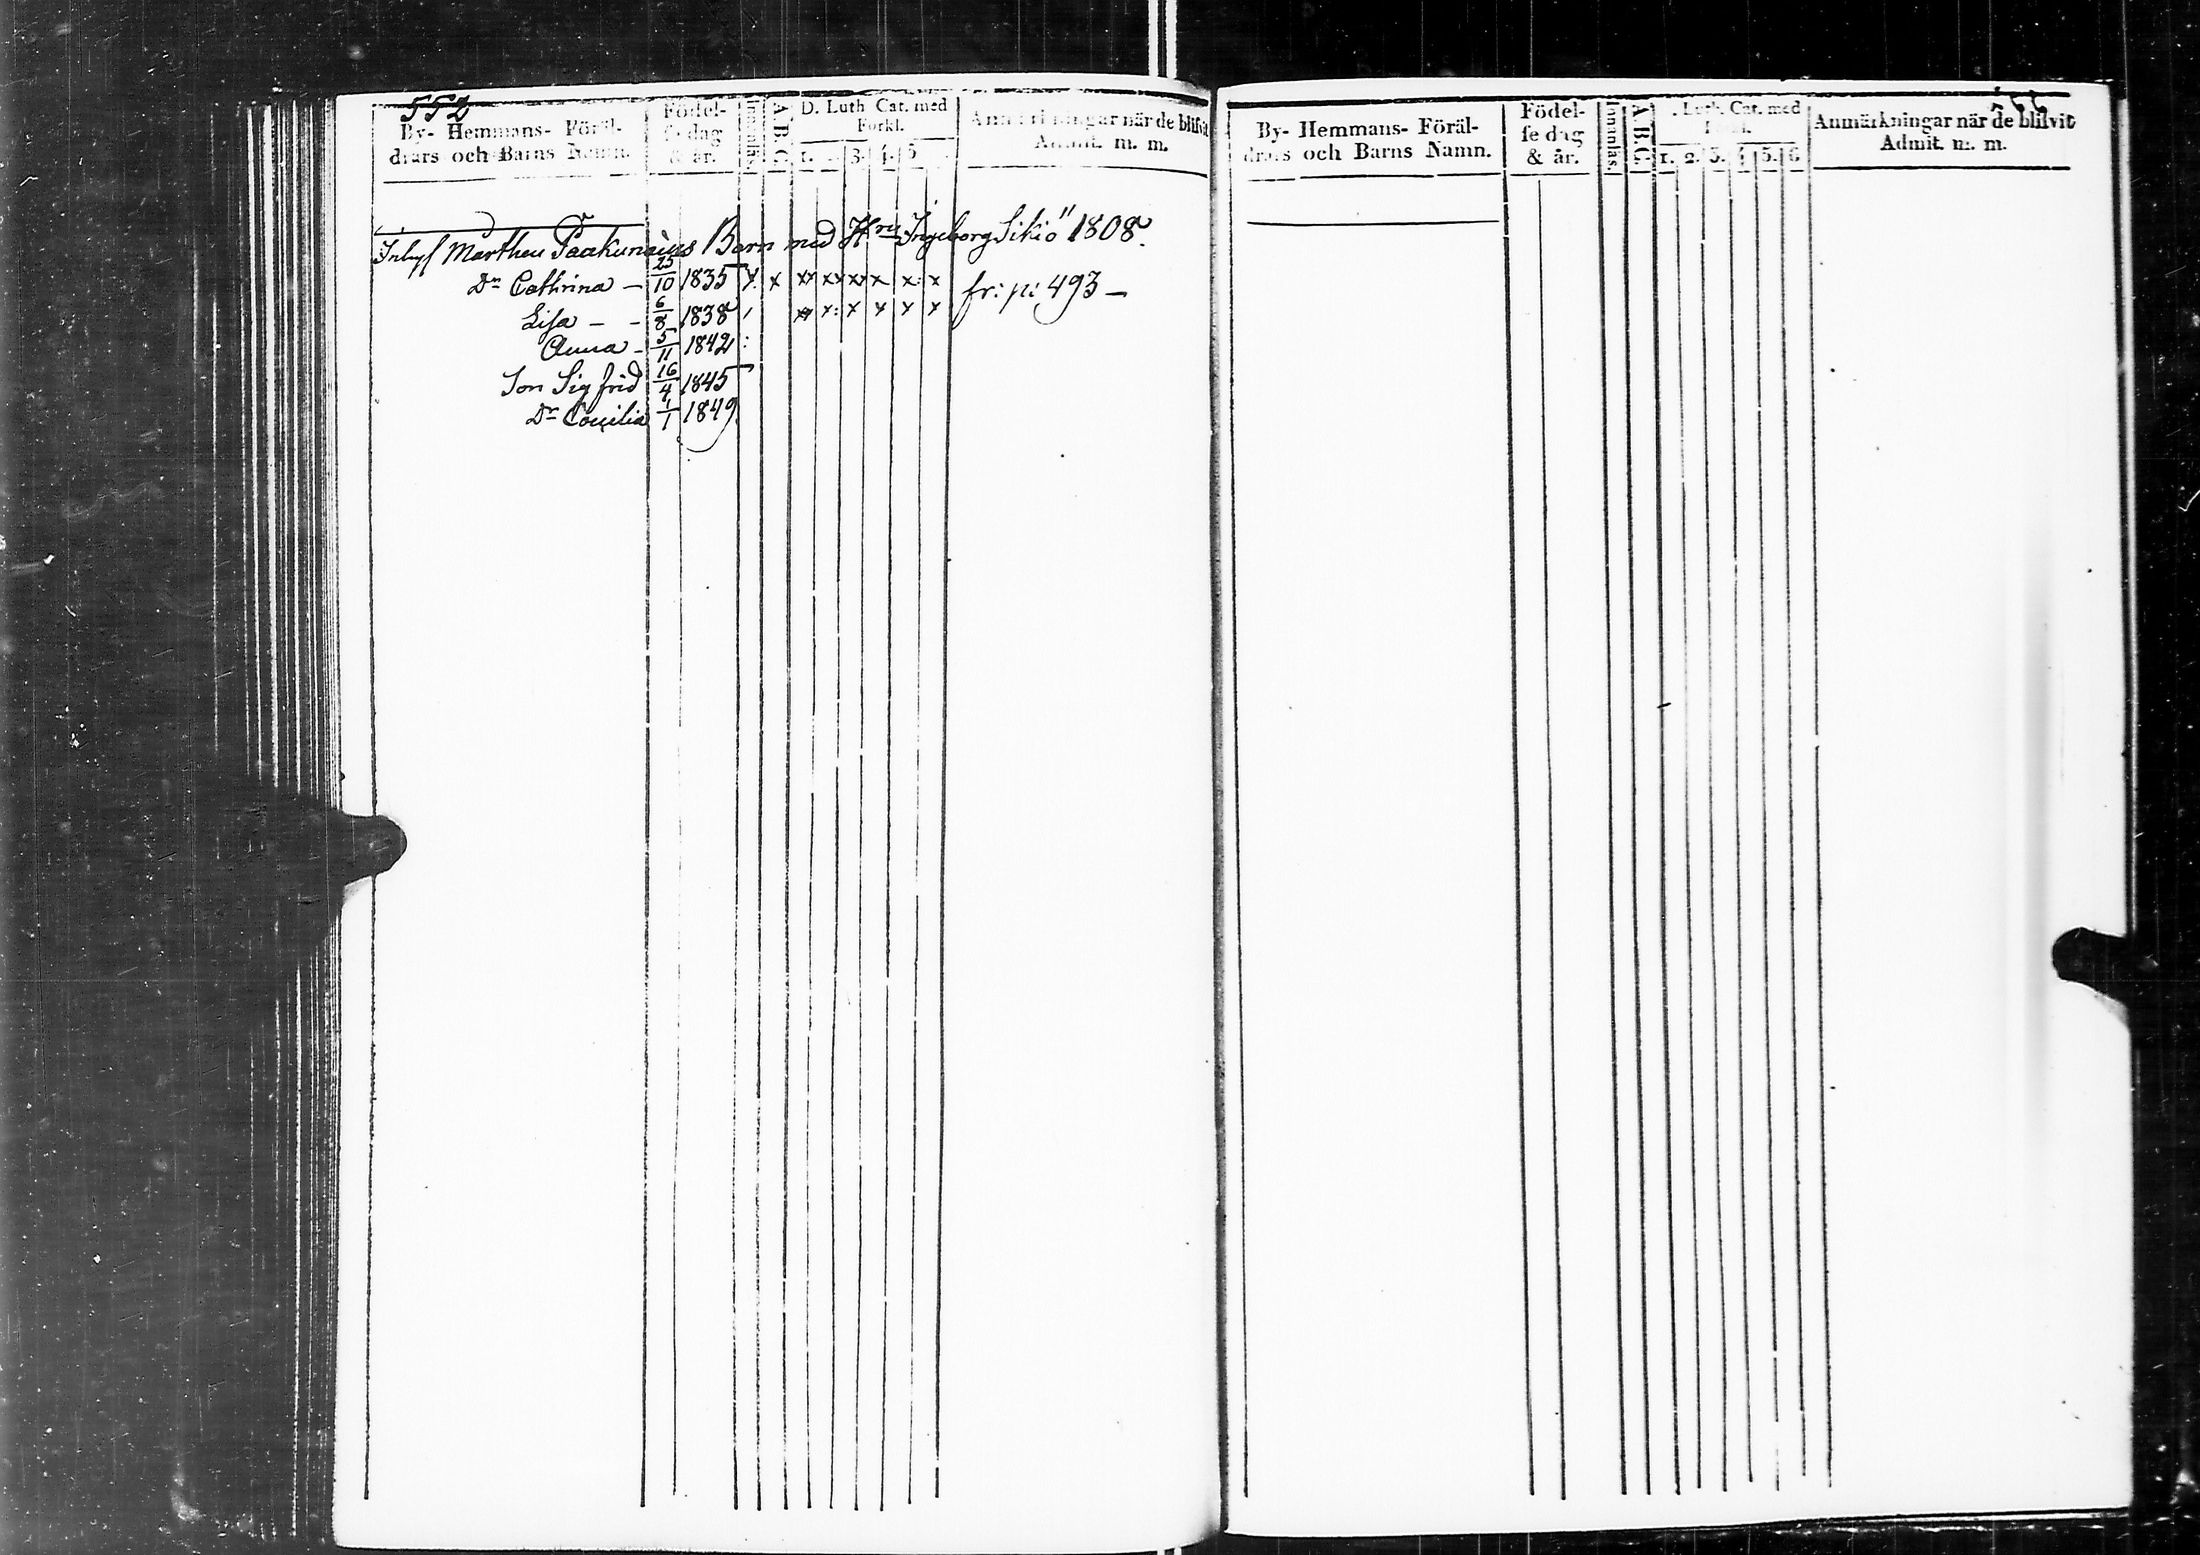 552
By- Hemmans- Föräl-
drars och Barns Namn.
Födel-
se dag
& år.
Innanläs.
A.B.C.
D. Luth Cat. med
Forkl.
1. 3. 4. 5
Anmärkningar när de blifvit
Admit. m. m.
Inhys Marthen Paakunains Barn med Hru Ingeborg Sikiö 1808.
Dr Cathrina - 25/10 1835 x x x x x x x x fr: p: 493 -
Lisa - - 6/8 1838 x x: x x x x
Anna - 5/11 1842 :
Son Sigfrid 16/4 1845
Dr Cecilia 1/1 1849
By- Hemmans- Föräl-
drars och Barns Namn.
Födel-
se dag
& år.
Innanläs.
A B.C.
. Luth. Cat. med
Forkl.
1. 2. 3. 4 5. 6
Anmärkningar när de blifvit
Admit. m. m.